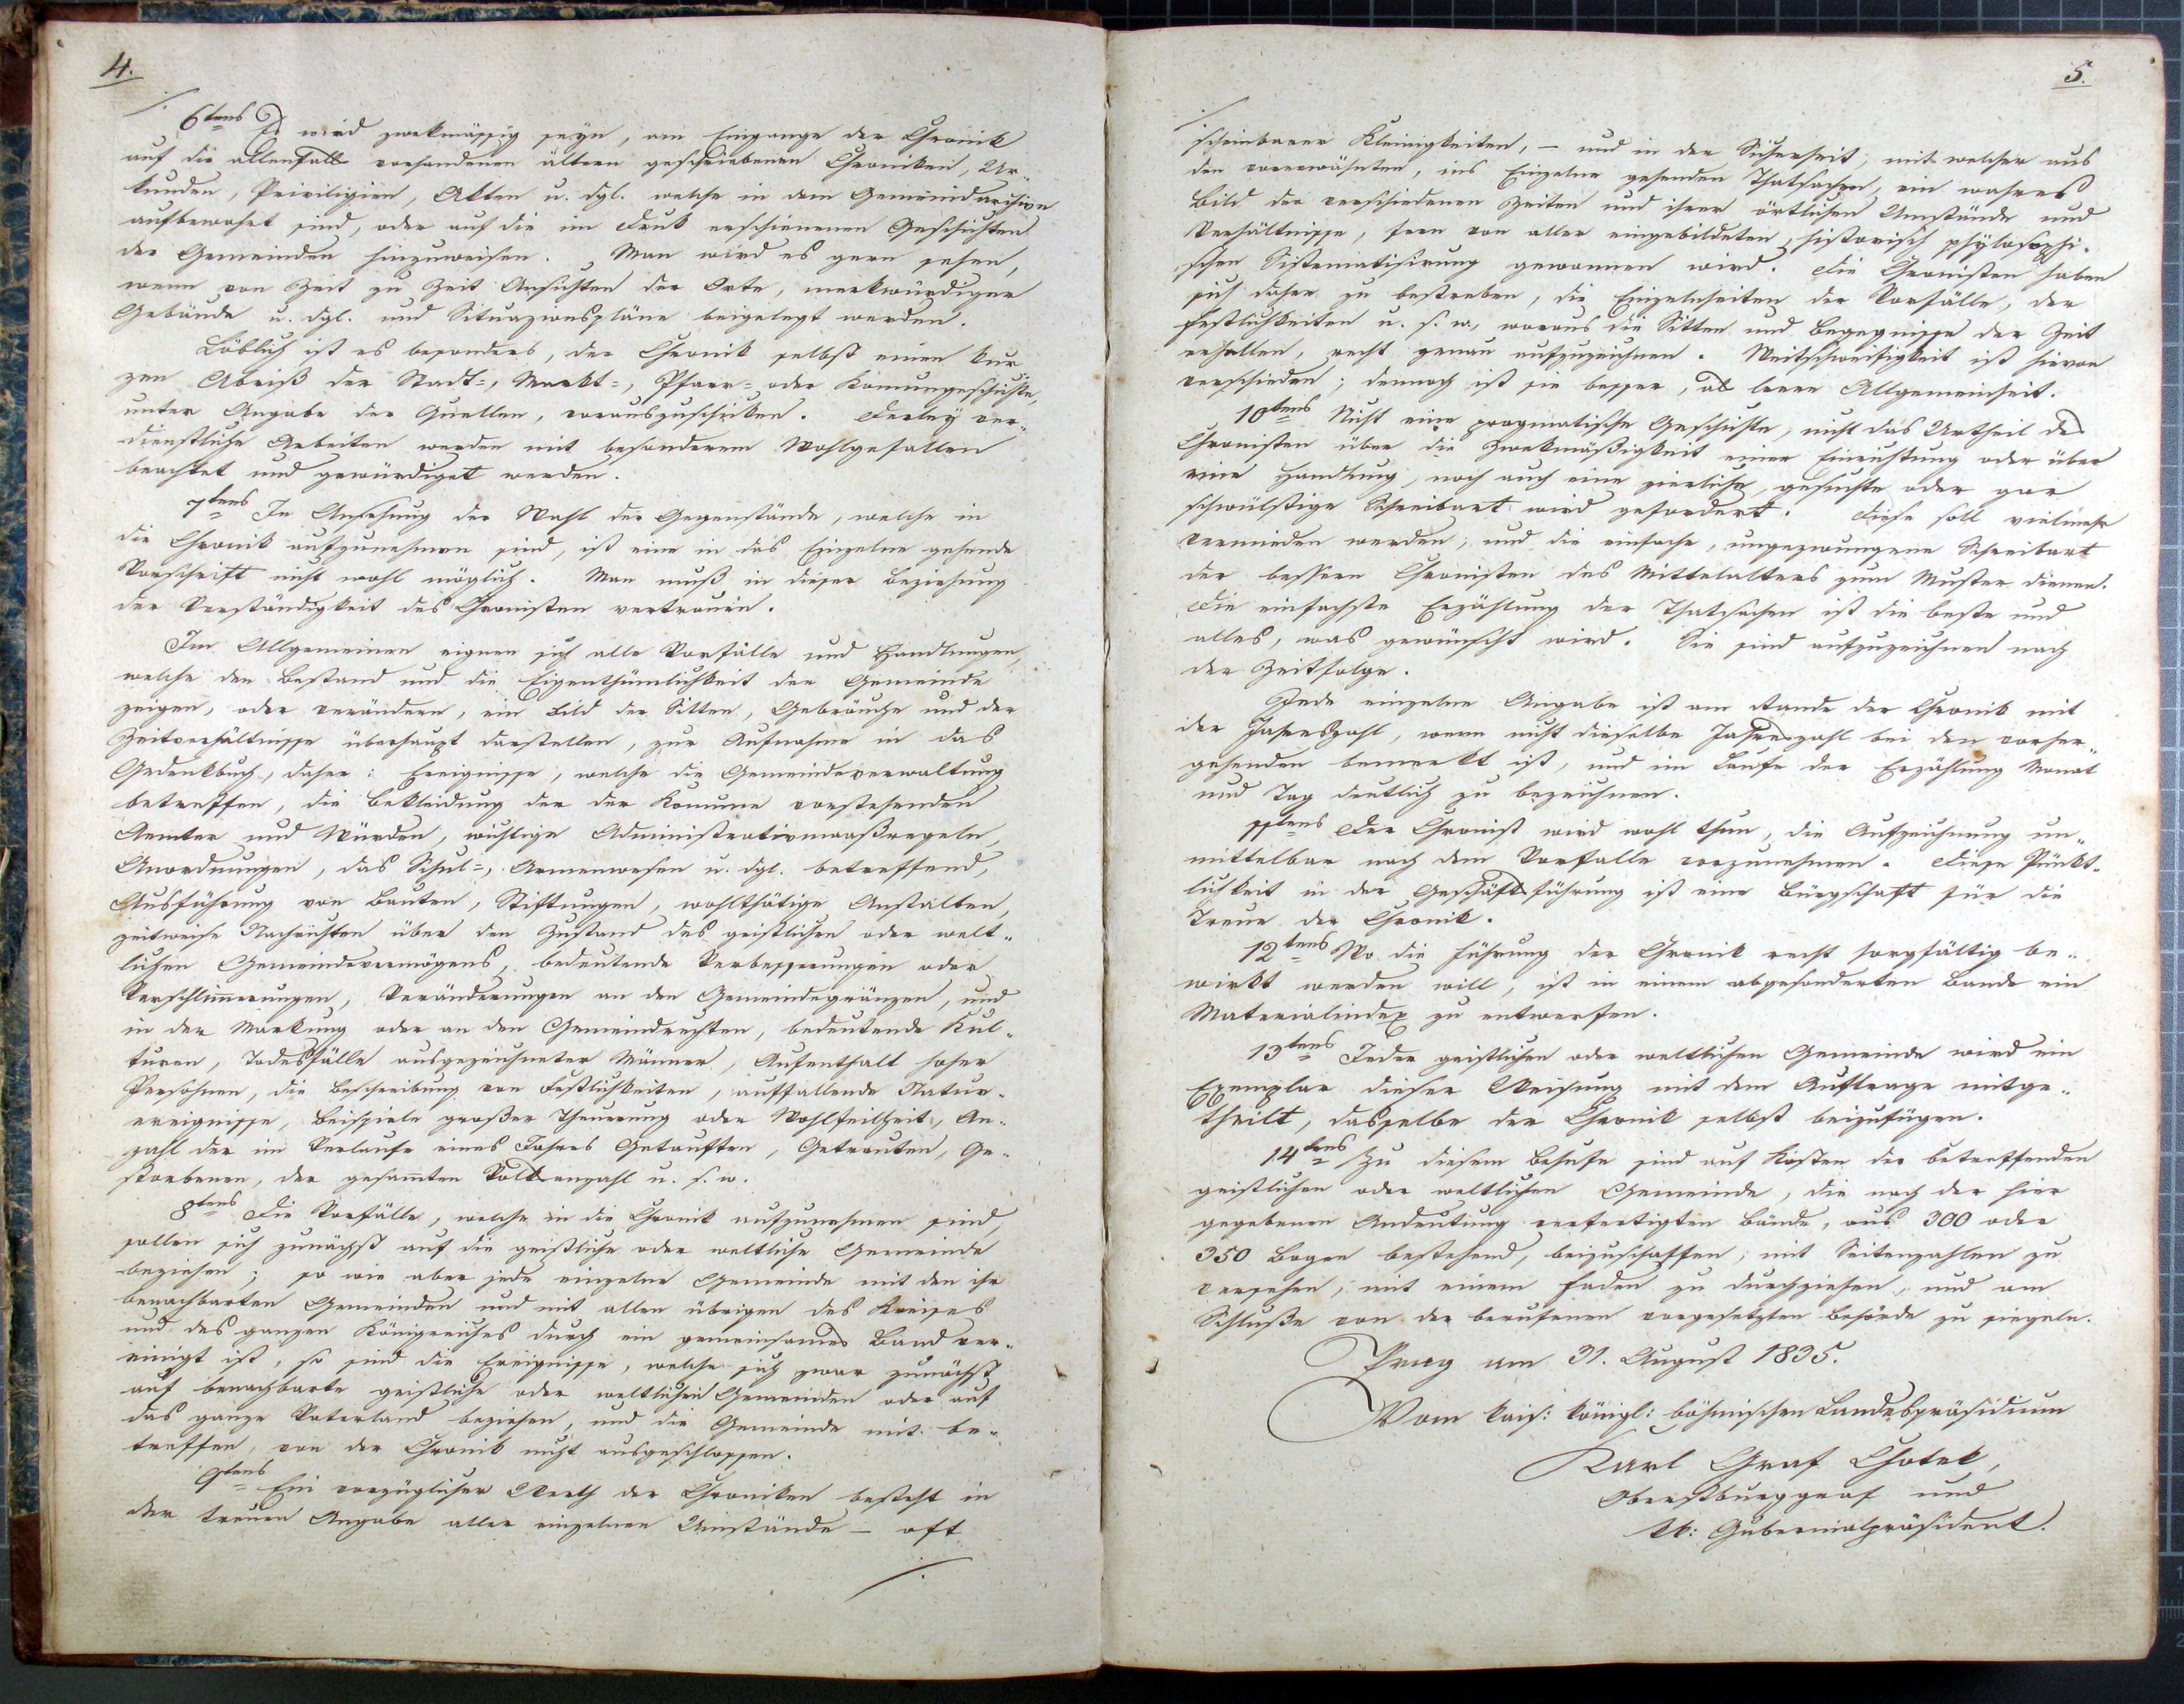 4.
6tens Es wird zwekmässig seyn, am Eingange der Chronik
auf die allenfalls vorhandenen ältern geschriebenen Chroniken, Ur-
kunden, Priviligien, Akten u. dgl. welche in dem Gemeindarchive
aufbewahrt sind, oder auf die im Druk erschienenen Geschichten
der Gemeinden hinzuweisen. Man wird es gern sehen,
wenn von Zeit zu Zeit Ansichten der Orte, merkwürdiger
Gebäude u. dgl. und Situazionspläne beigelegt werden.
Löblich ist es besonders, der Chronik selbst einen kur-
zen Abriß der Stadt-, Markt-, Pfarr- oder Komungeschichte,
unter Angabe der Quellen, vorauszuschiken. Derley ver-
dienstliche Arbeiten werden mit besonderem Wohlgefallen
beachtet und gewürdiget werden.
7tens In Ansehung der Wahl der Gegenstände, welche in
die Chronik aufzunehmen sind, ist eine in das Einzelne gehende
Vorschrift nicht wohl möglich. Man muß in dieser Beziehung
der Verständigkeit des Chronisten vertrauen.
Im Allgemeinen eignen sich alle Vorfälle und Handlungen,
welche den Bestand und die Eigenthümlichkeit der Gemeinde
zeigen, oder verändern, ein Bild der Sitten, Gebräuche und der
Zeitverhältnisse überhaupt darstellen, zur Aufnahme in das
Gedenkbuch, daher: Ereignisse, welche die Gemeindeverwaltung
betreffen, die Bekleidung der der Komune vorstehenden
Aemter und Würden, wichtige Administrativmaaßregeln,
Anordnungen, das Schul-, Armenwesen u. dgl. betreffend,
Ausführung von Bauten, Stiftungen, wohlthätige Anstalten,
zeitweise Nachrichten über den Zustand des geistlichen oder welt-
lichen Gemeindevermögens, bedeutende Verbesserungen oder
Verschlimerungen, Veränderungen an den Gemeindegränzen, und
in der Markung oder an den Gemeindrechten, bedeutende Kul-
turen, Todesfälle ausgezeichneter Männer, Aufenthalt hoher
Persohnen, die Beschreibung von Festlichkeiten, auffallende Natur-
ereignisse, Beispiele großer Theuerung oder Wohlfeilheit, An-
zahl der im Verlaufe eines Jahres Getauften, Getrauten, Ge-
storbenen, der gesamten Volksanzahl u. s. w.
8tens Die Vorfälle, welche in die Chronik aufzunehmen sind,
sollen sich zunächst auf die geistliche oder weltliche Gemeinde
beziehen; so wie aber jede einzelne Gemeinde mit den ihr
benachbarten Gemeinden und mit allen übrigen des Kreises
und des ganzen Königreiches durch ein gemeinsames Band ver-
einigt ist, so sind die Ereignisse, welche sich zwar zunächst
auf benachbarte geistliche oder weltlichen Gemeinden oder auf
das ganze Vaterland beziehen, und die Gemeinde mit be-
treffen, von der Chronik nicht ausgeschlossen.
9tens Ein vorzüglicher Werth der Chroniken besteht in
der treuen Angabe aller einzelnen Umstände – oft
5.
scheinbarer Kleinigkeiten, – und in der Sicherheit, mit welcher aus
den vorerwähnten, ins Einzelne gehenden Thatsachen, ein wahres
Bild der verschiedenen Zeiten und ihrer örtlichen Umstände und
Verhältnisse, fern von aller eingebildeten, historisch phylosophi-
schen Sistematisirung gewonnen wird. Die Chronisten haben
sich daher zu bestreben, die Einzelnheiten der Vorfälle, der
Festlichkeiten u. s. w, woraus die Sitten und Begegnisse der Zeit
erhellen, recht genau aufzuzeichnen. Weitschweifigkeit ist hievon
verschieden; dennoch ist sie besser, als leere Allgemeinheit.
10tens Nicht eine pragmatische Geschichte, nicht das Urtheil des
Chronisten über die Zwekmäßigkeit einer Einrichtung oder über
eine Handlung, noch auch eine zierliche, gesuchte oder gar
schwülstige Schreibart wird gefordert. Diese soll vielmehr
vermieden werden, und die einfache, ungezwungene Schreibart
der bessern Chronisten des Mittelalters zum Muster dienen.
Die einfachste Erzählung der Thatsachen ist die beste und
alles, was gewünscht wird. Sie sind aufzuzeichnen nach
der Zeitfolge.
Jede einzelne Angabe ist am Rande der Chronik mit
der Jahreszahl, wenn nicht dieselbe Jahreszahl bei den vorher-
gehenden bemerkt ist, und im Laufe der Erzählung Monat
und Tag deutlich zu bezeichnen.
11tens Der Chronist wird wohl thun, die Aufzeichnung un-
mittelbar nach dem Vorfalle vorzunehmen. Diese Pünkt-
lichkeit in der Geschäftsführung ist eine Bürgschaft für die
Treue der Chronik.
12tens Wo die Führung der Chronik recht sorgfältig be-
wirkt werden will, ist in einem abgesonderten Bande ein
Materialindex zu entwerfen.
13tens Jeder geistlichen oder weltlichen Gemeinde wird ein
Exemplar dieser Weisung mit dem Auftrage mitge-
theilt, dasselbe der Chronik selbst beizufügen.
14tens Zu diesem Behufe sind auf Kosten der betreffenden
geistlichen oder weltlichen Gemeinde, die nach der hier
gegebenen Andeutung verfertigten Bände, aus 300 oder
350 Bogen bestehend, beizuschaffen, mit Seitenzahlen zu
versehen, mit einem Faden zu durchziehen, und am
Schluße von der berufenen vorgesetzten Behörde zu siegeln.
Prag am 31. August 1835.
Vom kais: königl: böhmischen Landespräsidium
Karl Graf Chotek,
Oberstburggraf und
kk: Gubernialpräsident.